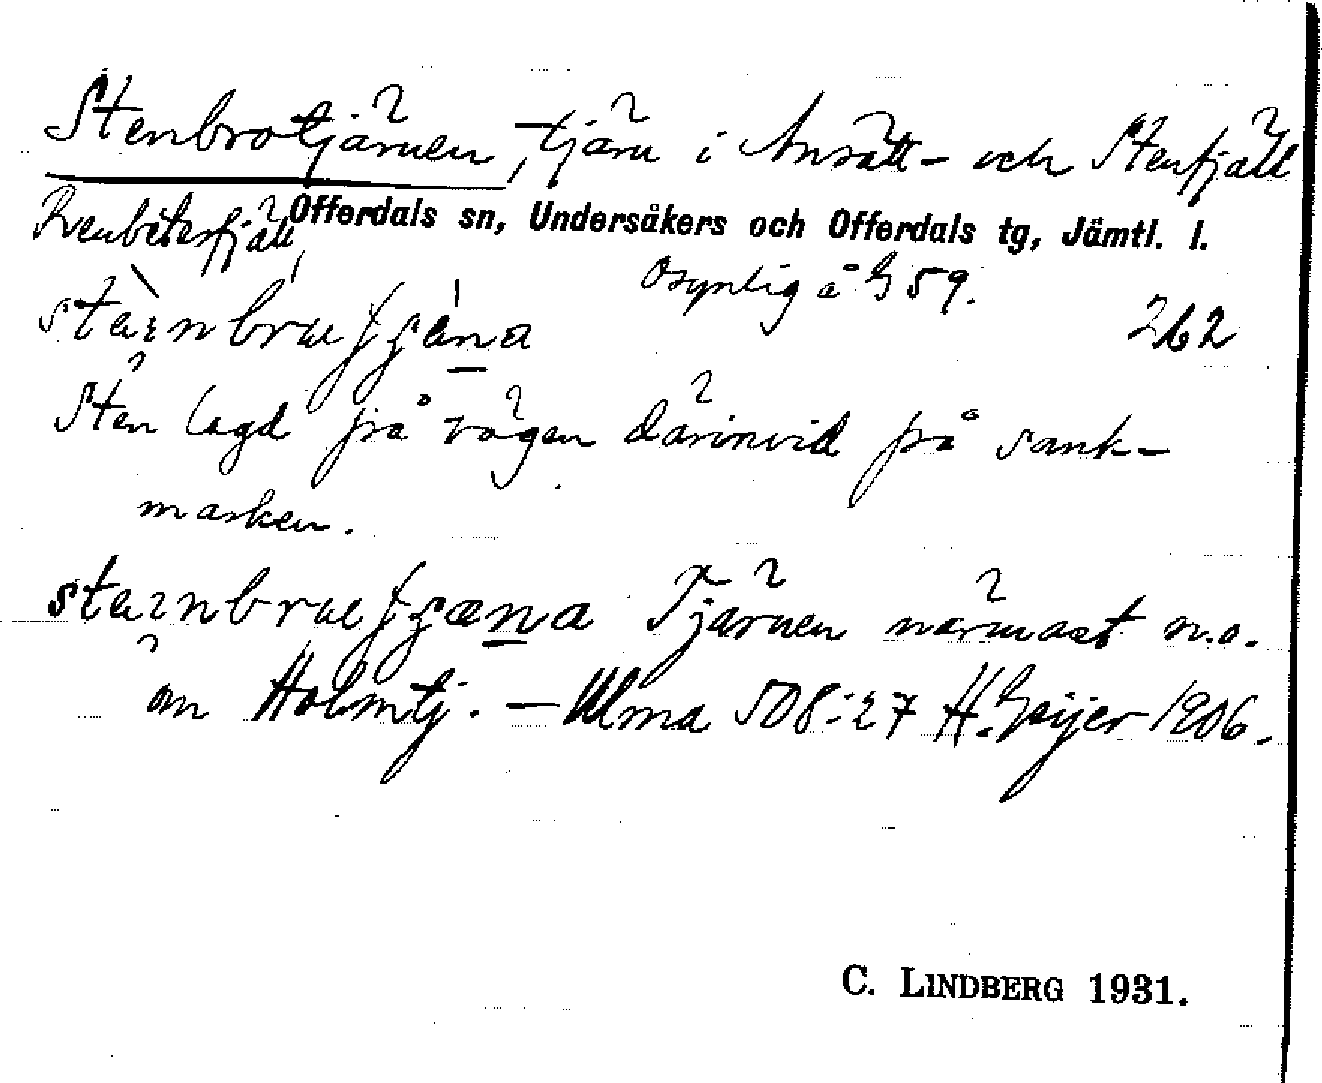 Stenbrotjärnen, tjärn i Ansätt- och Stenfjäll
Renbetesfjäll, Offerdals sn, Undersåkers och Offerdals tg, Jämtl. l.
Osynlig å G 59.
262
Sten lagd på vägen därinvid på sank-
marken.
Tjärnen närmast n.o.
om Holmtj. — Ulma 508:27 H. Geijer 1906.
C. LINDBERG 1931.